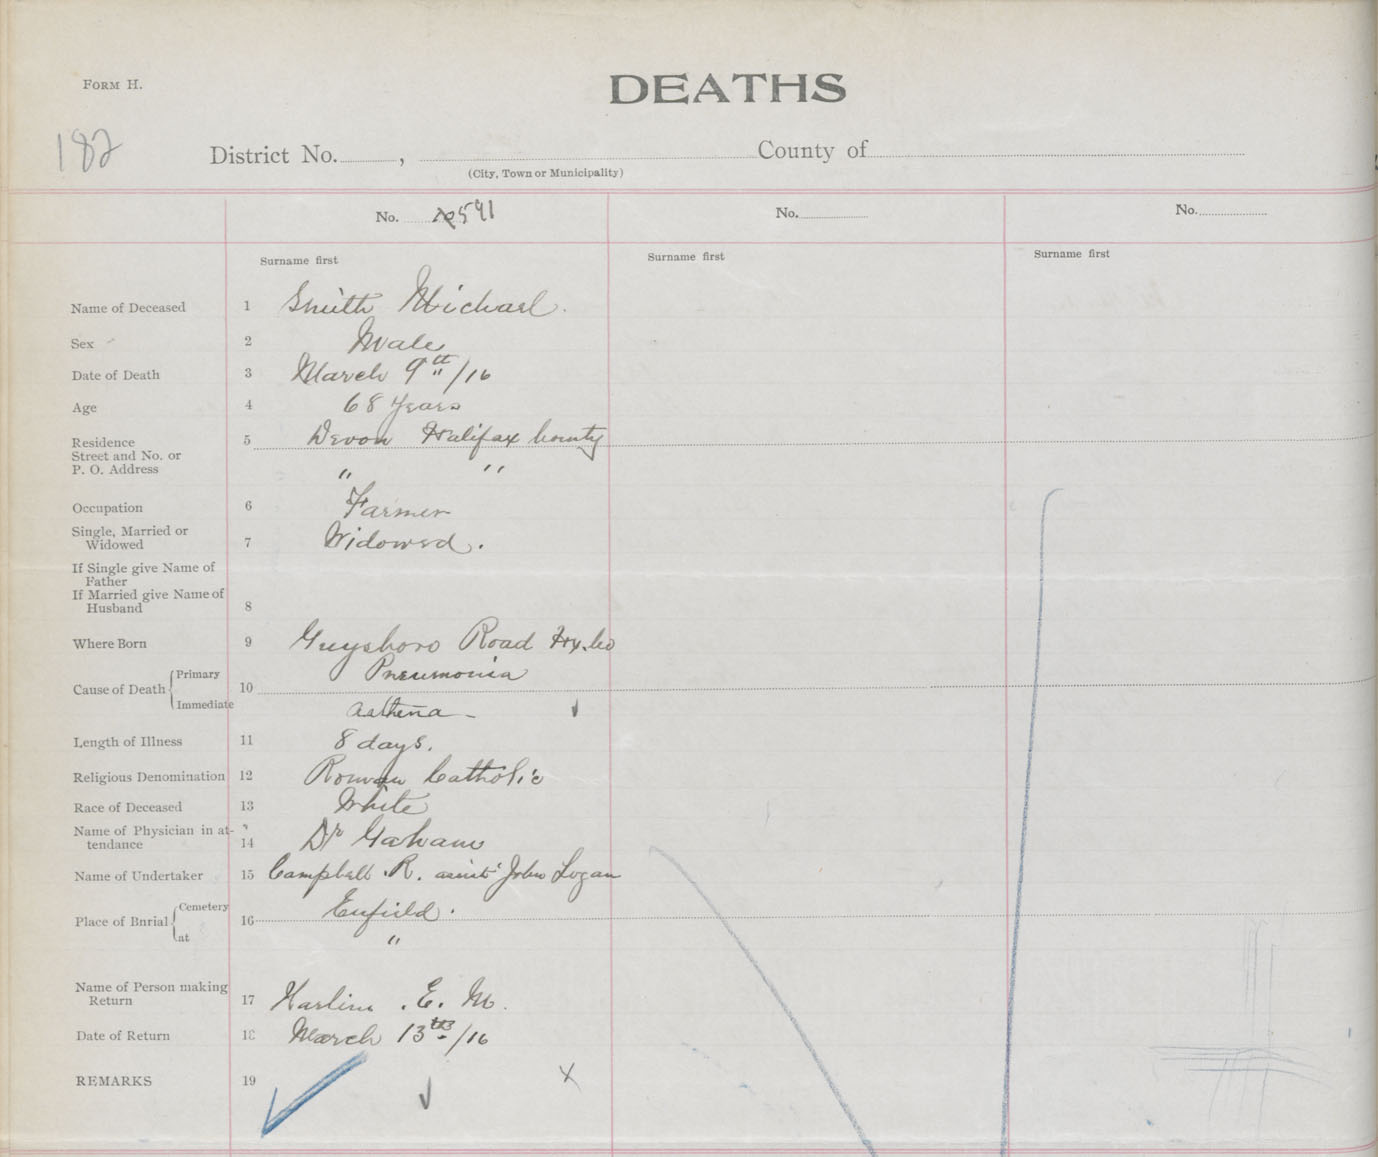 FORM H.
DEATHS
182
District No. , County of
(City, Town or Municipality)
No. 591
No.
No.
Surname first
Surname first
Surname first
Name of Deceased 1 Smith Michael.
Sex 2 Male
Date of Death 3 March 9th/16
Age 4 68 Years
Residence 5 Devon Halifax County
Street and No. or
P. O. Address " "
Occupation 6 Farmer
Single, Married or
Widowed 7 Widowed.
If Single give Name of
Father
If Married give Name of
Husband 8
Where Born 9 Guysboro Road Hx. Co
Primary Pneumonia
Cause of Death 10
Immediate Asthena
Length of Illness 11 8 days.
Religious Denomination 12 Roman Catholic
Race of Deceased 13 White
Name of Physician in at-
tendance 14 Dr
Name of Undertaker 15 Campbell R. John Logan
Cemetery Enfield.
Place of Bnrial 16
at "
Name of Person making
Return 17 E. M.
Date of Return 18 March 13th/16
REMARKS 19